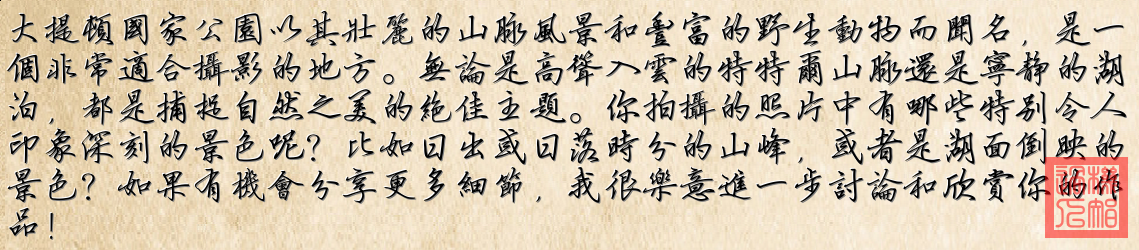 大提頓國家公園以其壯麗的山脈風景和豐富的野生動物而聞名，是一
個非常適合攝影的地方。無論是高聳入雲的特特爾山脈還是寧静的湖
泊，都是捕捉自然之美的絶佳主題。你拍攝的照片中有哪些特别令人
印象深刻的景色呢？比如日出或日落時分的山峰，或者是湖面倒映的
景色？如果有機會分享更多細節，我很樂意進一步討論和欣賞你的作
品！